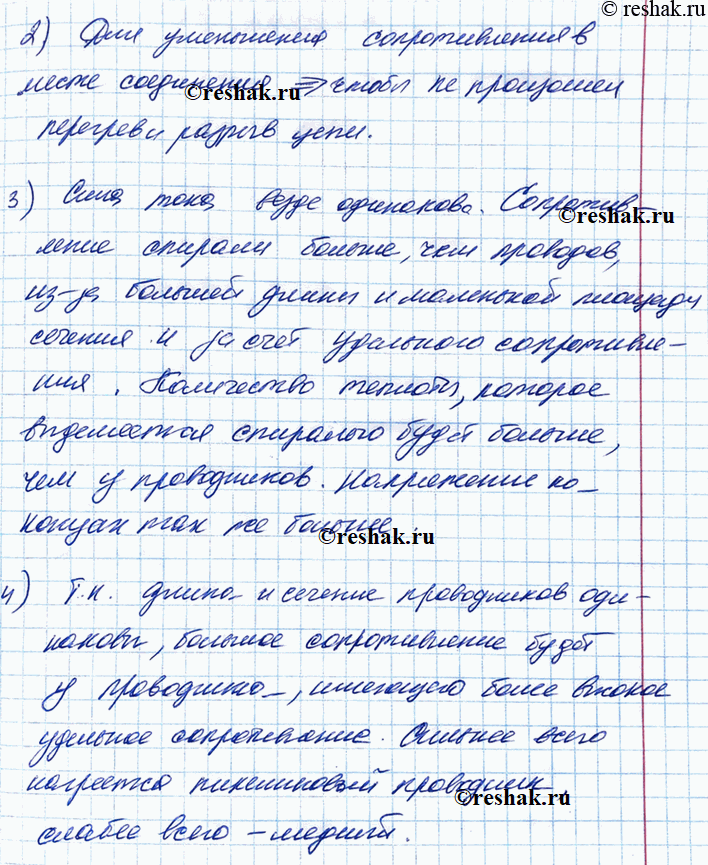 © reshak.ru
2) Для уменьшения сопротивления в
месте соединения ⇒ чтобы не произошел
©reshak.ru
перегрев и разрыв цепи.
3) Сила тока везде одинакова. Сопротив-
©reshak.ru
ление спирали больше, чем проводов,
из-за большей длины и маленькой площади
сечения и за счет удельного сопротивле-
ния. Количество теплоты, которое
выделяется спиралью будет больше,
чем у проводников. Напряжение на
концах так же больше.
©reshak.ru
4) Т.к. длина и сечение проводников оди-
наковы, большое сопротивление будет
у проводника, имеющего более высокое
удельное сопротивление. Сильнее всего
нагреется никелиновый проводник,
©reshak.ru
слабее всего - медный.